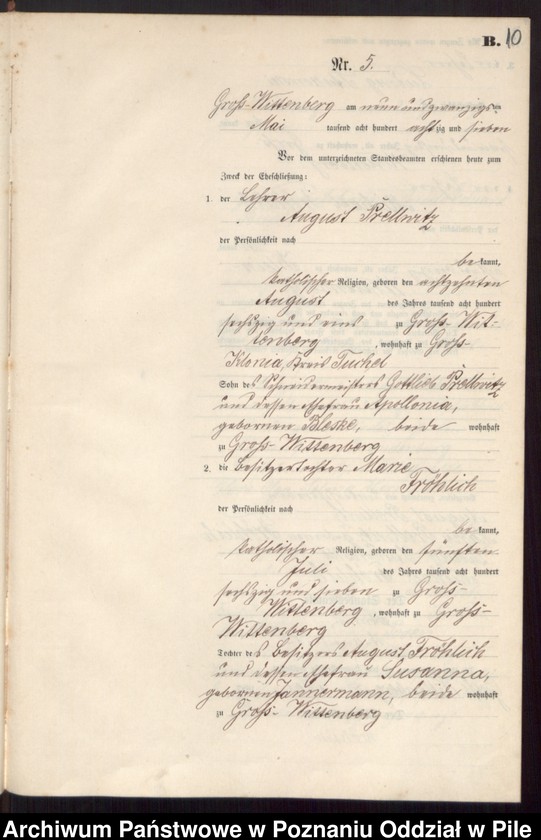 B. 10
Nr. 5.
Groß-Wittenberg am neun und zwanzigsten
Mai tausend acht hundert achtzig und sieben
Vor dem unterzeichneten Standesbeamten erschienen heute zum
Zweck der Eheschließung:
1. der Lehrer
August Prellwitz
der Persönlichkeit nach
bekannt,
katholischer Religion, geboren den achtzehnten
August des Jahres tausend acht hundert
sechszig und eins zu Groß-Wit-
tenberg, wohnhaft zu Groß-
Klonia, Kreis Tuchel
Sohn des Schneidermeisters Gottlieb Prellwitz
und dessen Ehefrau Apollonia,
gebornen Bleske, beide wohnhaft
zu Groß-Wittenberg
2. die Besitzertochter Marie
Fröhlich
der Persönlichkeit nach
bekannt,
katholischer Religion, geboren den fünften
Juli des Jahres tausend acht hundert
sechszig und sieben zu Groß-
Wittenberg, wohnhaft zu Groß-
Wittenberg
Tochter des Besitzers August Fröhlich
und dessen Ehefrau Susanna,
gebornen Jannermann, beide wohnhaft
zu Groß-Wittenberg
Archiwum Państwowe w Poznaniu Oddział w Pile